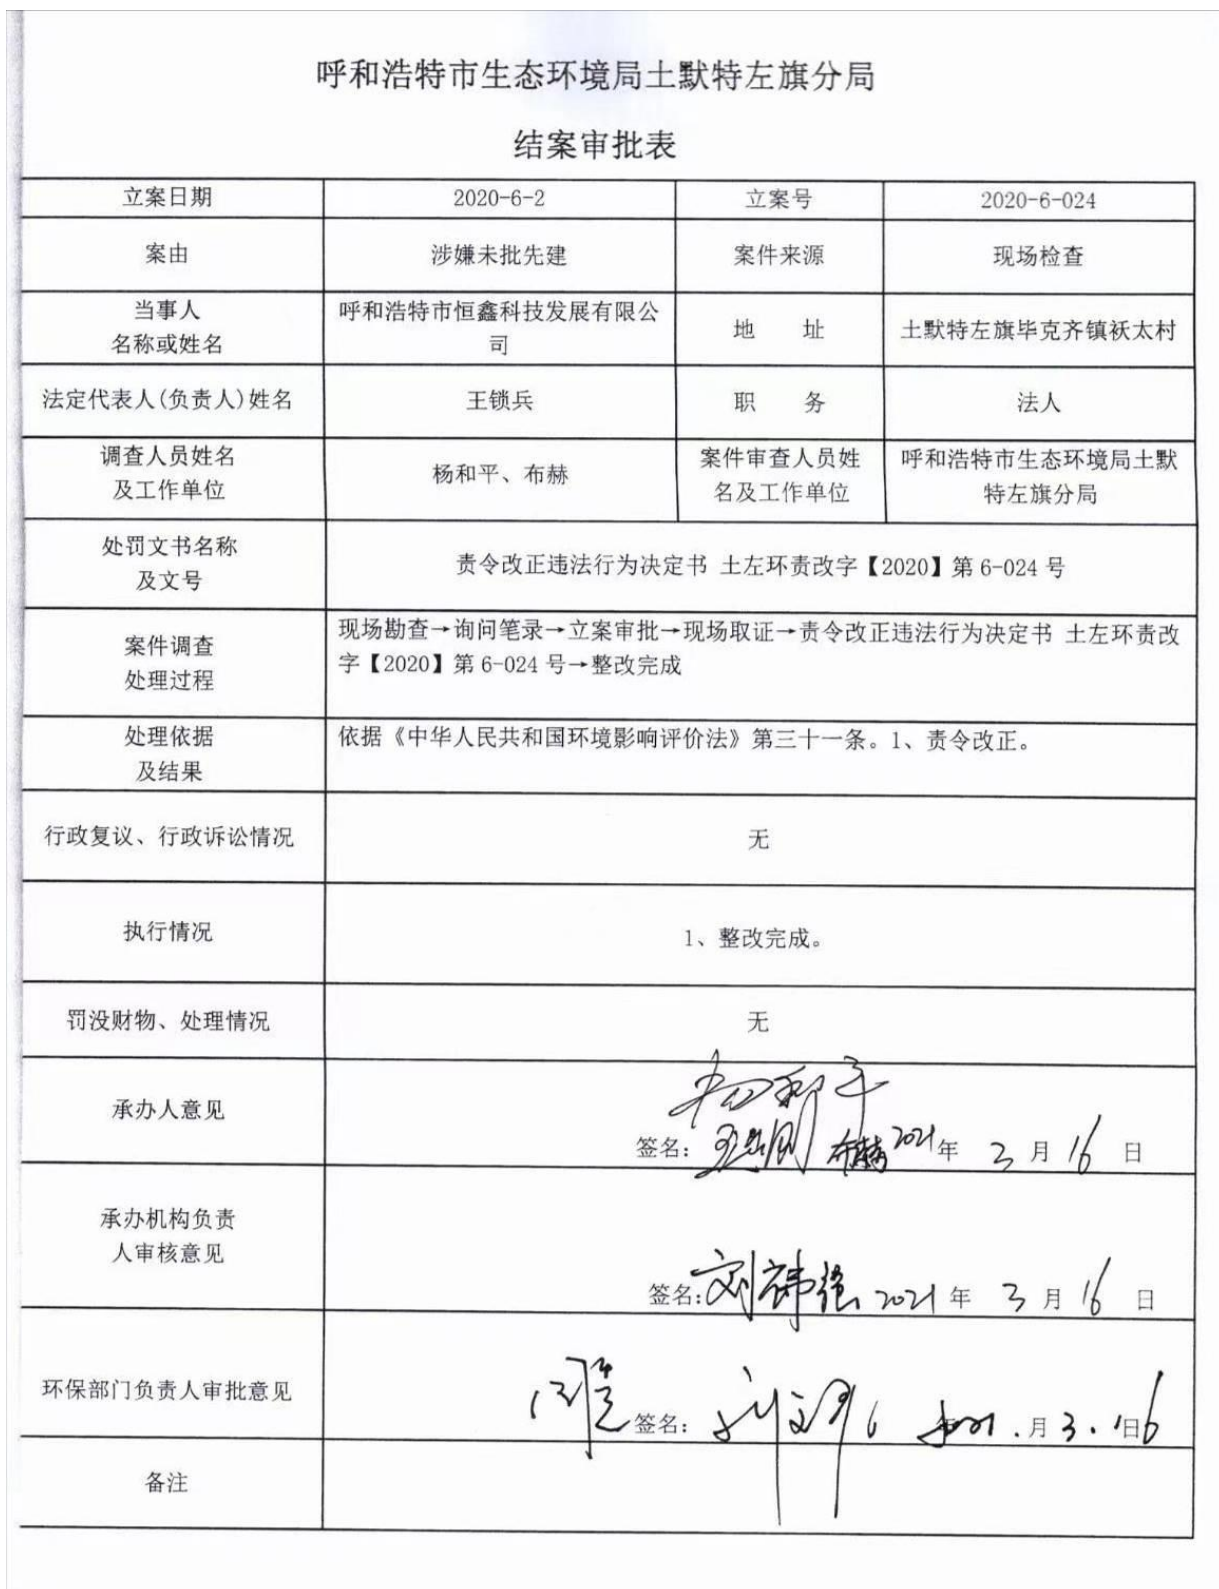 呼和浩特市生态环境局土默特左旗分局
结案审批表
立案日期 2020-6-2 立案号 2020-6-024
案由 涉嫌未批先建 案件来源 现场检查
当事人
名称或姓名
呼和浩特市恒鑫科技发展有限公
司
地 址 土默特左旗毕克齐镇袄太村
法定代表人(负责人)姓名 王锁兵 职 务 法人
调查人员姓名
及工作单位
杨和平、布赫
案件审查人员姓
名及工作单位
呼和浩特市生态环境局土默
特左旗分局
处罚文书名称
及文号
责令改正违法行为决定书 土左环责改字【2020】第 6-024 号
案件调查
处理过程
现场勘查→询问笔录→立案审批→现场取证→责令改正违法行为决定书 土左环责改
字【2020】第 6-024 号→整改完成
处理依据
及结果
依据《中华人民共和国环境影响评价法》第三十一条。1、责令改正。
行政复议、行政诉讼情况 无
执行情况 1、整改完成。
罚没财物、处理情况 无
承办人意见
杨和平
签名: 布赫 2021 年 3 月 16 日
承办机构负责
人审核意见
签名: 2021 年 3 月 16 日
环保部门负责人审批意见
同意 签名: 2021 . 月 3 . 日 16
备注